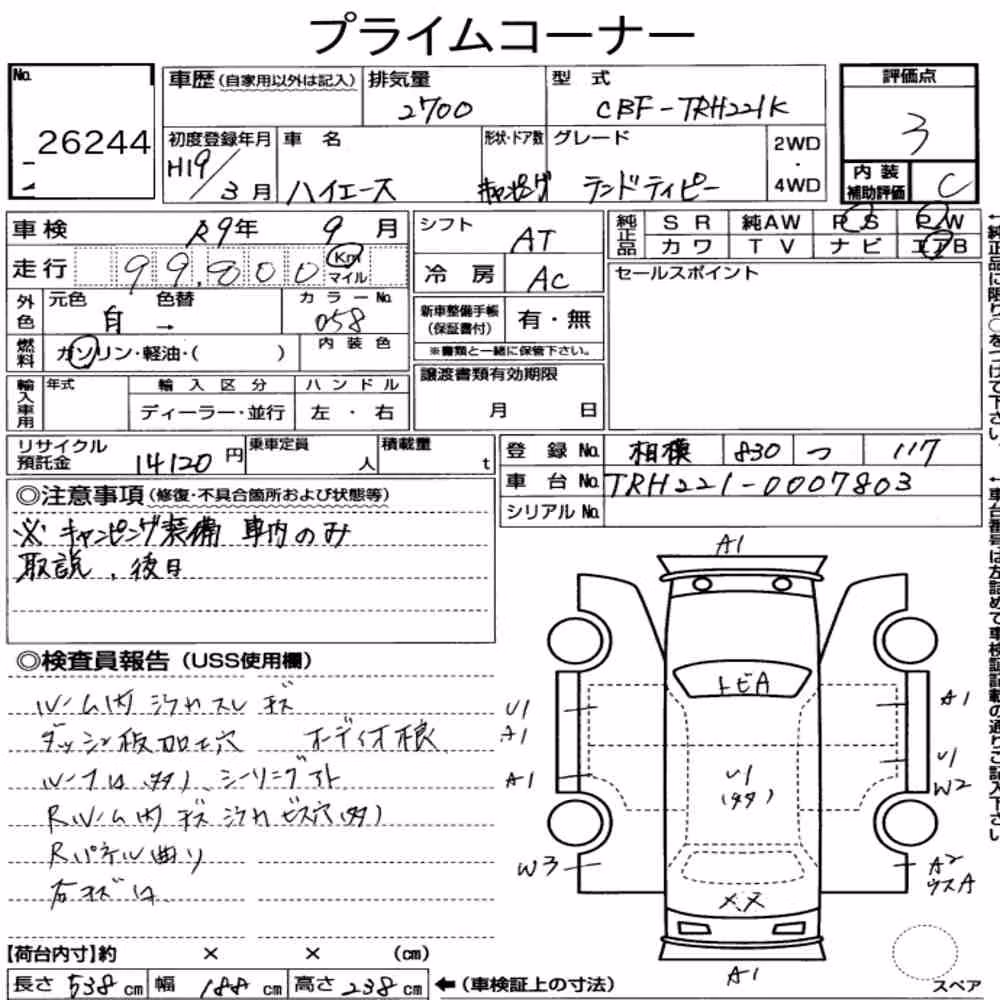 プライムコーナー
No. 26244
車歴 (自家用以外は記入)
排気量 2700
型式 CBF-TRH221K
評価点 3
初度登録年月 H19/3月
車名 ハイエース
形状・ドア数 キャンピング
グレード ランドティピー
2WD・4WD
内装補助評価 C
車検 R9年 9月
シフト AT
純正品 SR 純AW PS PW
カワ TV ナビ エアB
走行 99,800 Km マイル
冷房 AC
セールスポイント
外色 元色 白 → 色替
カラーNo. 058
新車整備手帳(保証書付) 有・無
※書類と一緒に保管下さい。
燃料 ガソリン・軽油・( )
内装色
譲渡書類有効期限
月 日
輸入車用 年式 輸入区分 ハンドル
ディーラー・並行 左・右
リサイクル預託金 14120円
乗車定員 人
積載量 t
登録No. 相模 830 つ 117
車台No. TRH221-0007803
シリアルNo.
◎注意事項(修復・不具合箇所および状態等)
※ キャンピング装備 車内のみ
取説、後日
◎検査員報告(USS使用欄)
ルーム内 汚れ スレ キズ
ダッシュ板加工穴 オーディオ横
R ルーム内 キズ 汚れ ビス穴(多)
Rパネル曲り
【荷台内寸】約 × × (cm)
長さ 538cm 幅 188cm 高さ 238cm
←(車検証上の寸法)
A1
トビA
U1
A1
A1
W3
U1
(多)
A1
U1
W2
A2
ウスA
XX
A1
スペア
↑純正品に限り○をつけて下さい。
↑車台番号は左詰めで車検証記載の通りご記入下さい